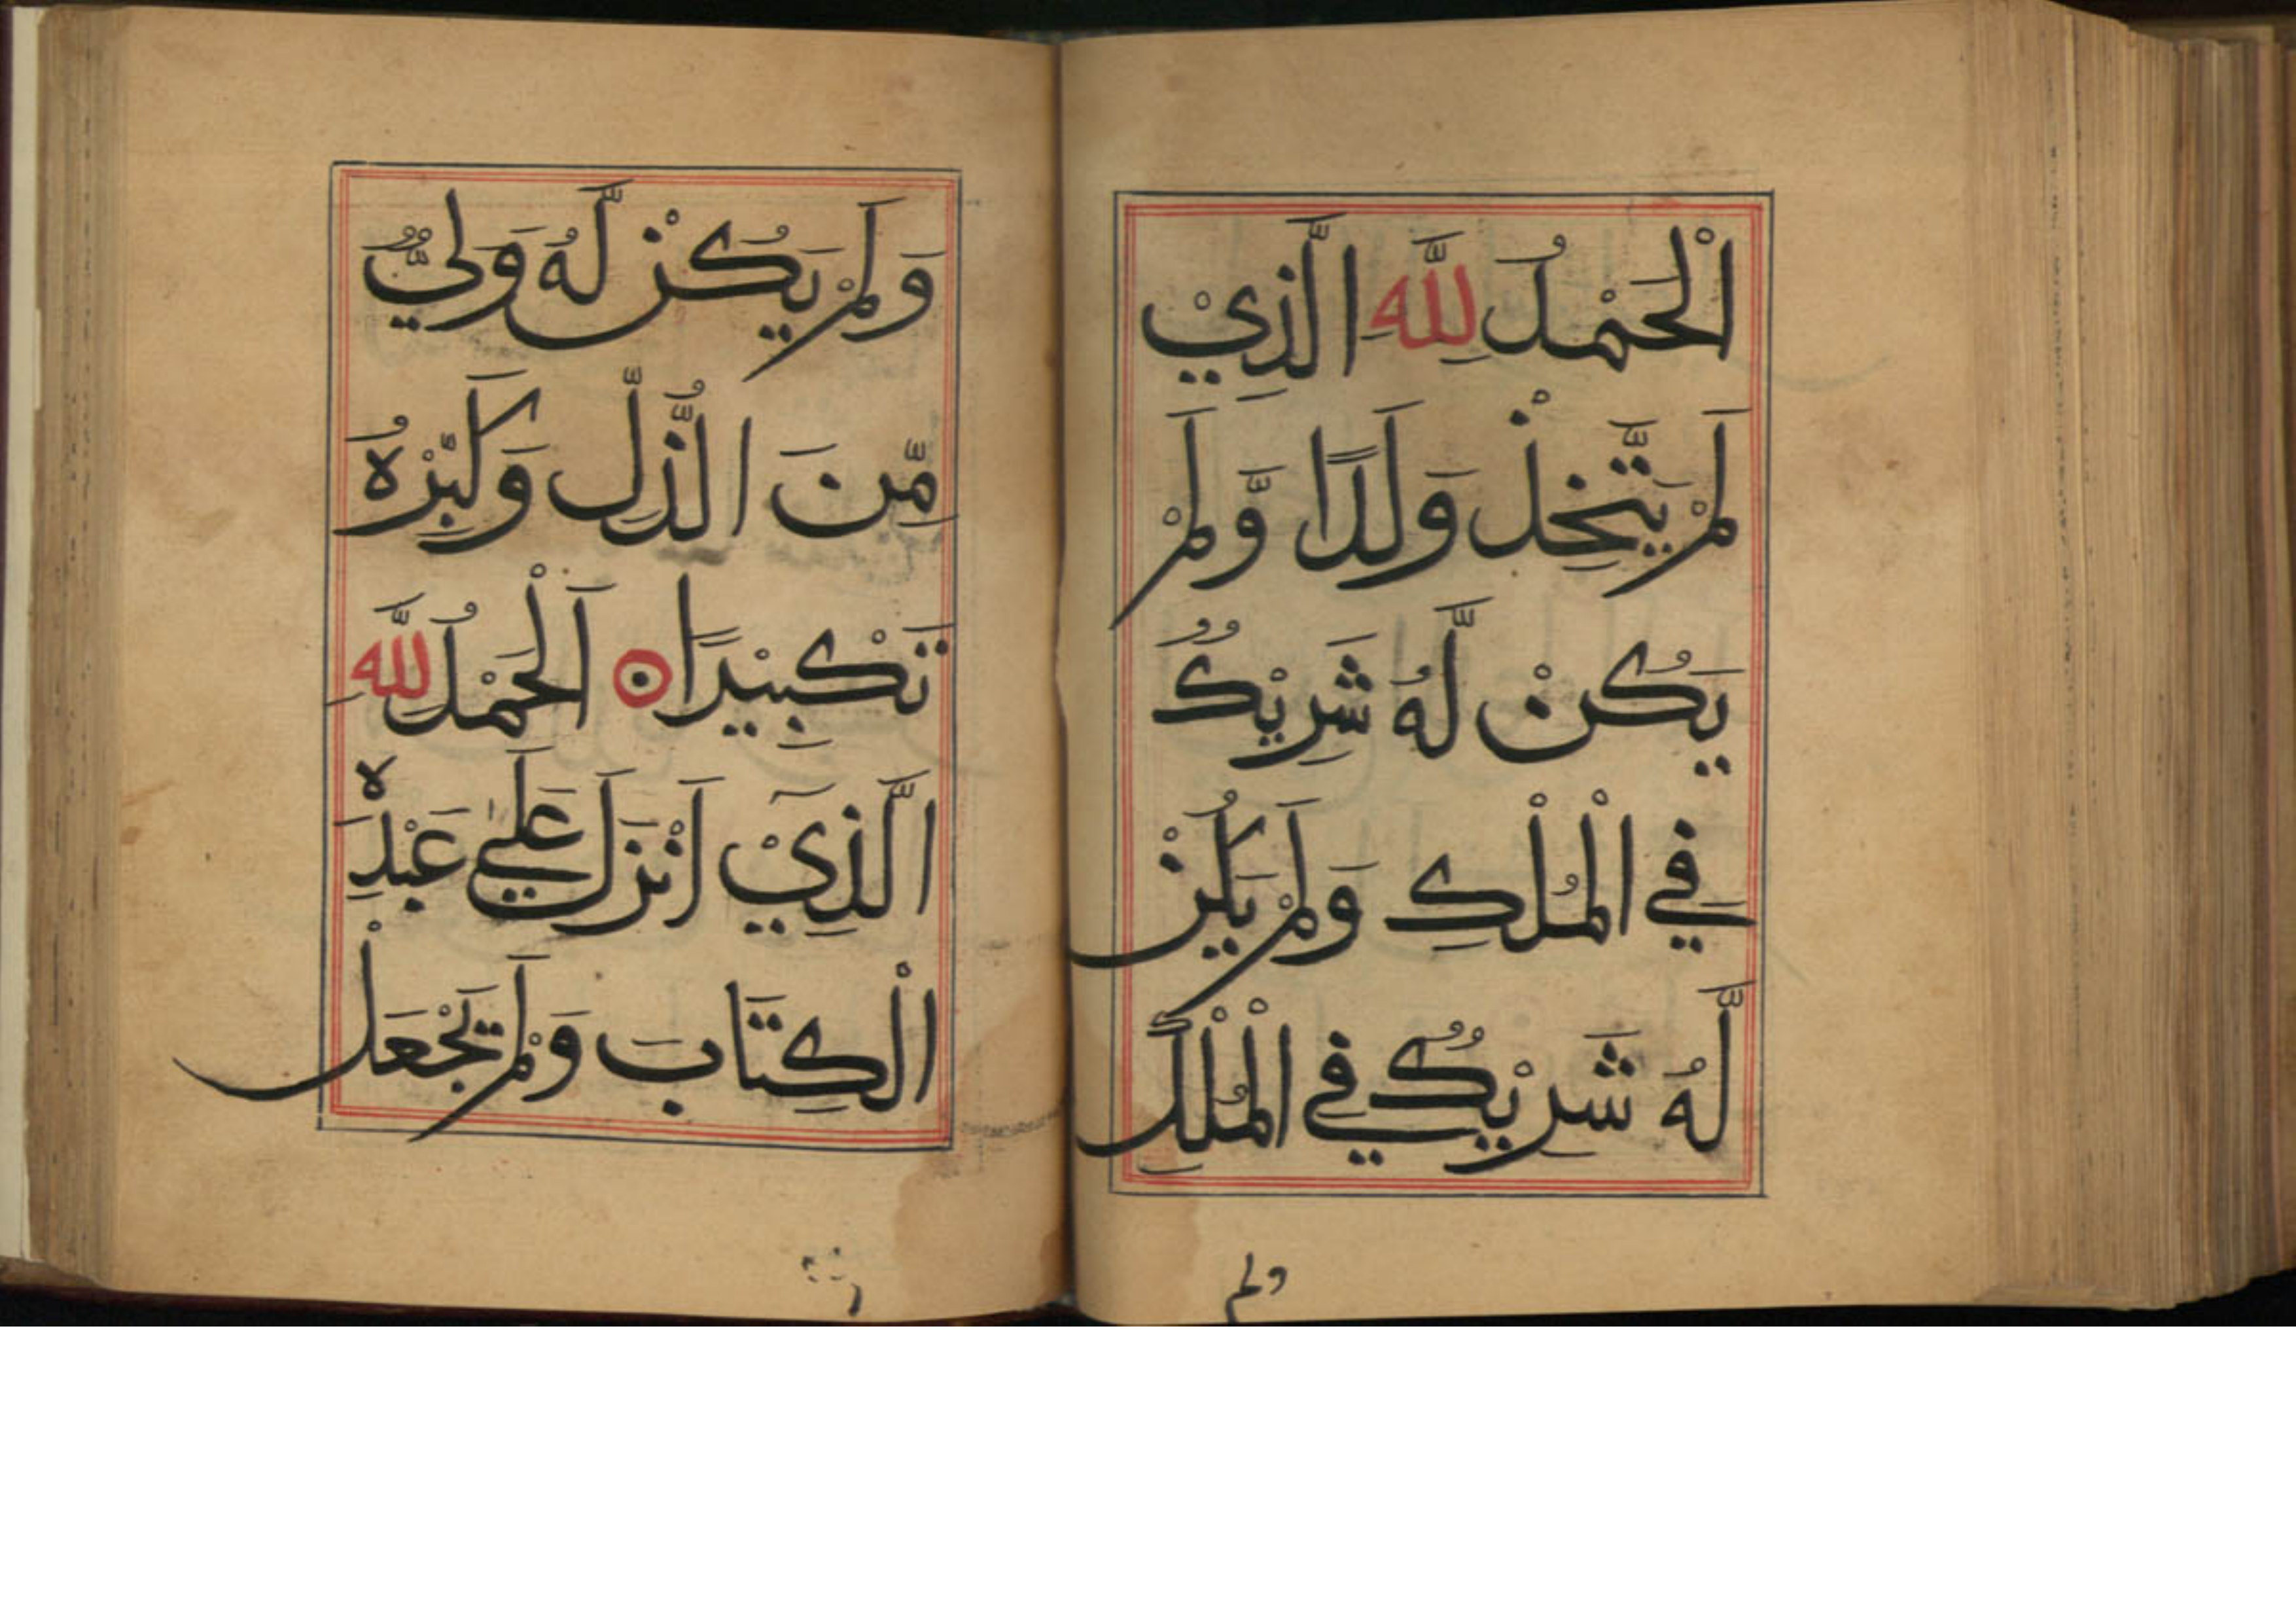 اَلْحَمْدُ لِلّٰهِ الَّذِيْ
لَمْ يَتَّخِذْ وَلَدًا وَّلَمْ
يَكُنْ لَّهُ شَرِيْكٌ
فِي الْمُلْكِ وَلَمْ يَكُنْ
لَّهُ شَرِيْكٌ فِي الْمُلْكِ
ولم
وَلَمْ يَكُنْ لَّهُ وَلِيٌّ
مِّنَ الذُّلِّ وَكَبِّرْهُ
تَكْبِيْرًا اَلْحَمْدُ لِلّٰهِ
الَّذِيْٓ اَنْزَلَ عَلٰي عَبْدِهْ
الْكِتَابَ وَلَمْ يَجْعَلْ